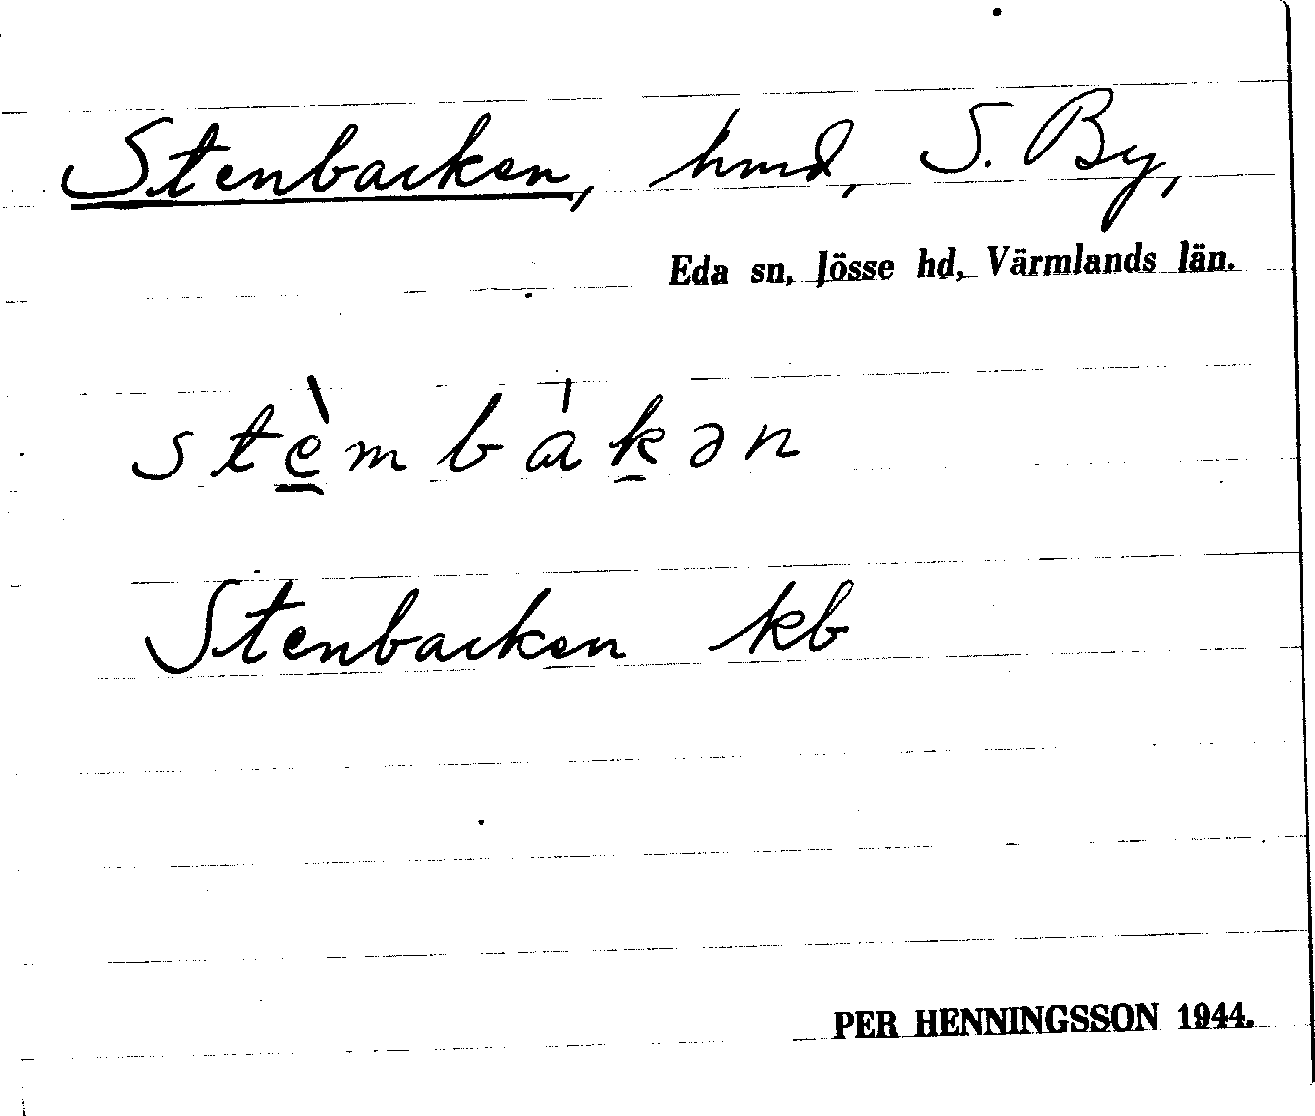 Stenbacken, hmd, S. By,
Eda sn, Jösse hd, Värmlands län.
stè̲mbа̍k̲ən
Stenbacken kb
PER HENNINGSSON 1944.